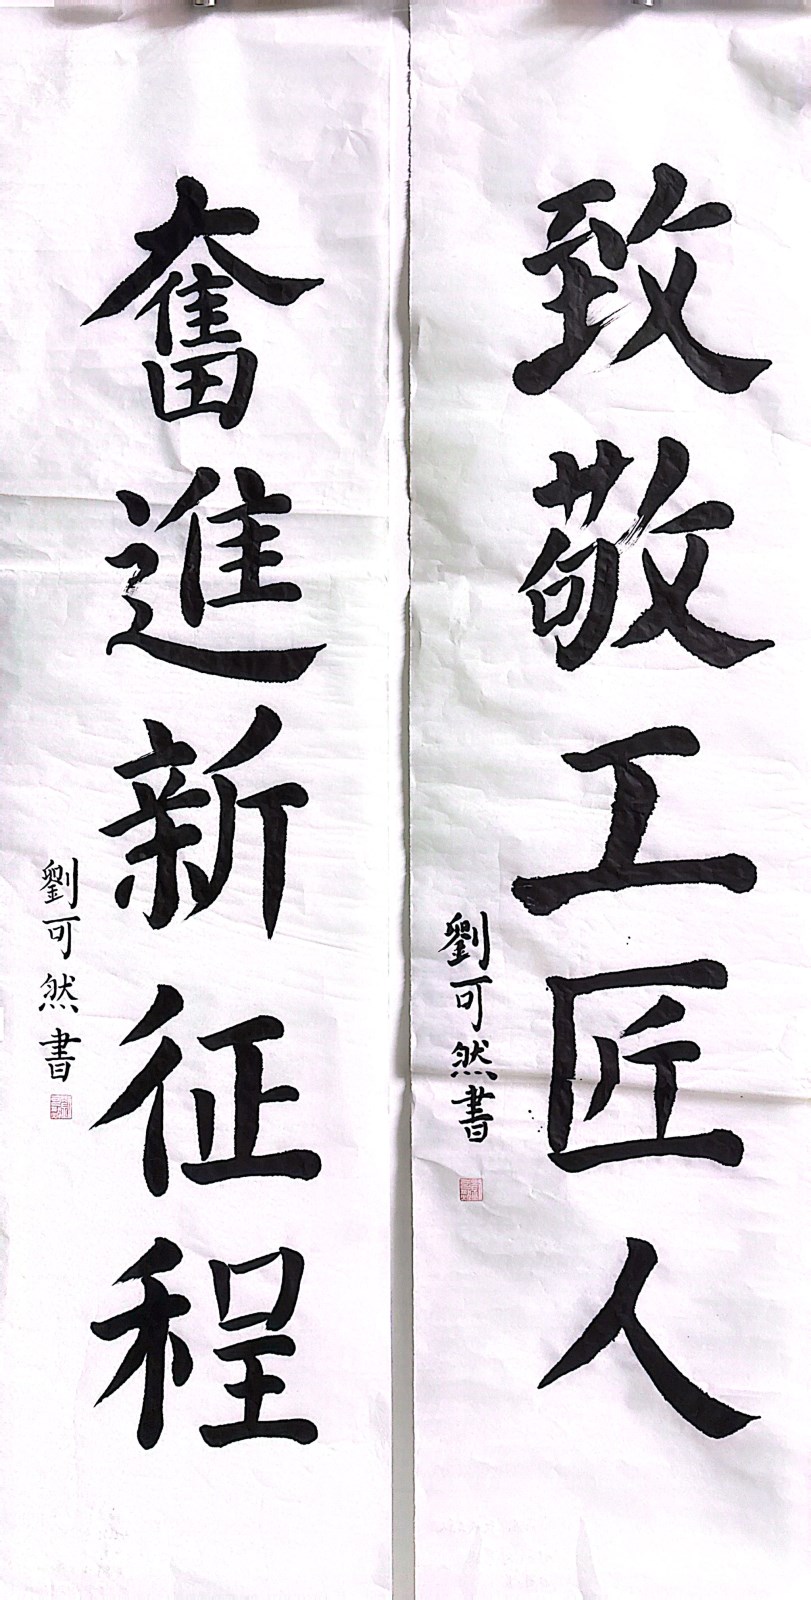 致敬工匠人
劉可然書
奮進新征程
劉可然書